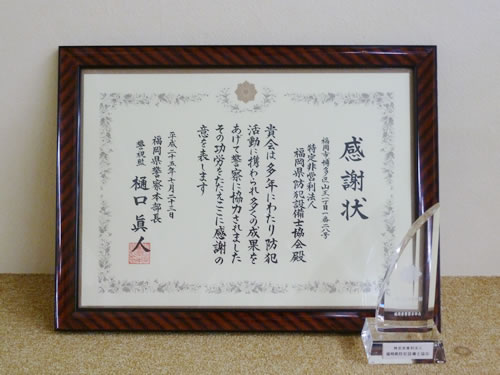 感謝状
福岡市博多区山王一丁目一番二八号
特定非営利法人
福岡県防犯設備士協会殿
貴会は多年にわたり防犯
活動に携わられ多くの成果を
あげて警察に協力されました
その功労をたたえここに感謝の
意を表します
平成二十五年十月二十二日
福岡県警察本部長
警視監 樋口眞人